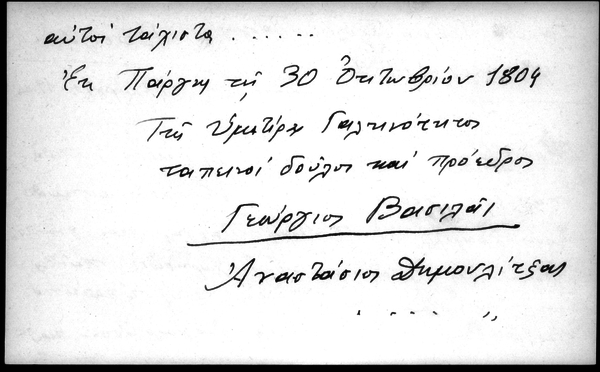 αὐτοὶ τάχιστα ......
Ἐκ Πάργας τῇ 30 Ὀκτωβρίου 1804
Τῆς Ὑμετέρας Γαληνότητος
ταπεινοί δοῦλοι καί πρόεδρος
Γεώργιος Βασιλᾶς
Ἀναστάσιος Δημουλίτζας
. . . . . ,,